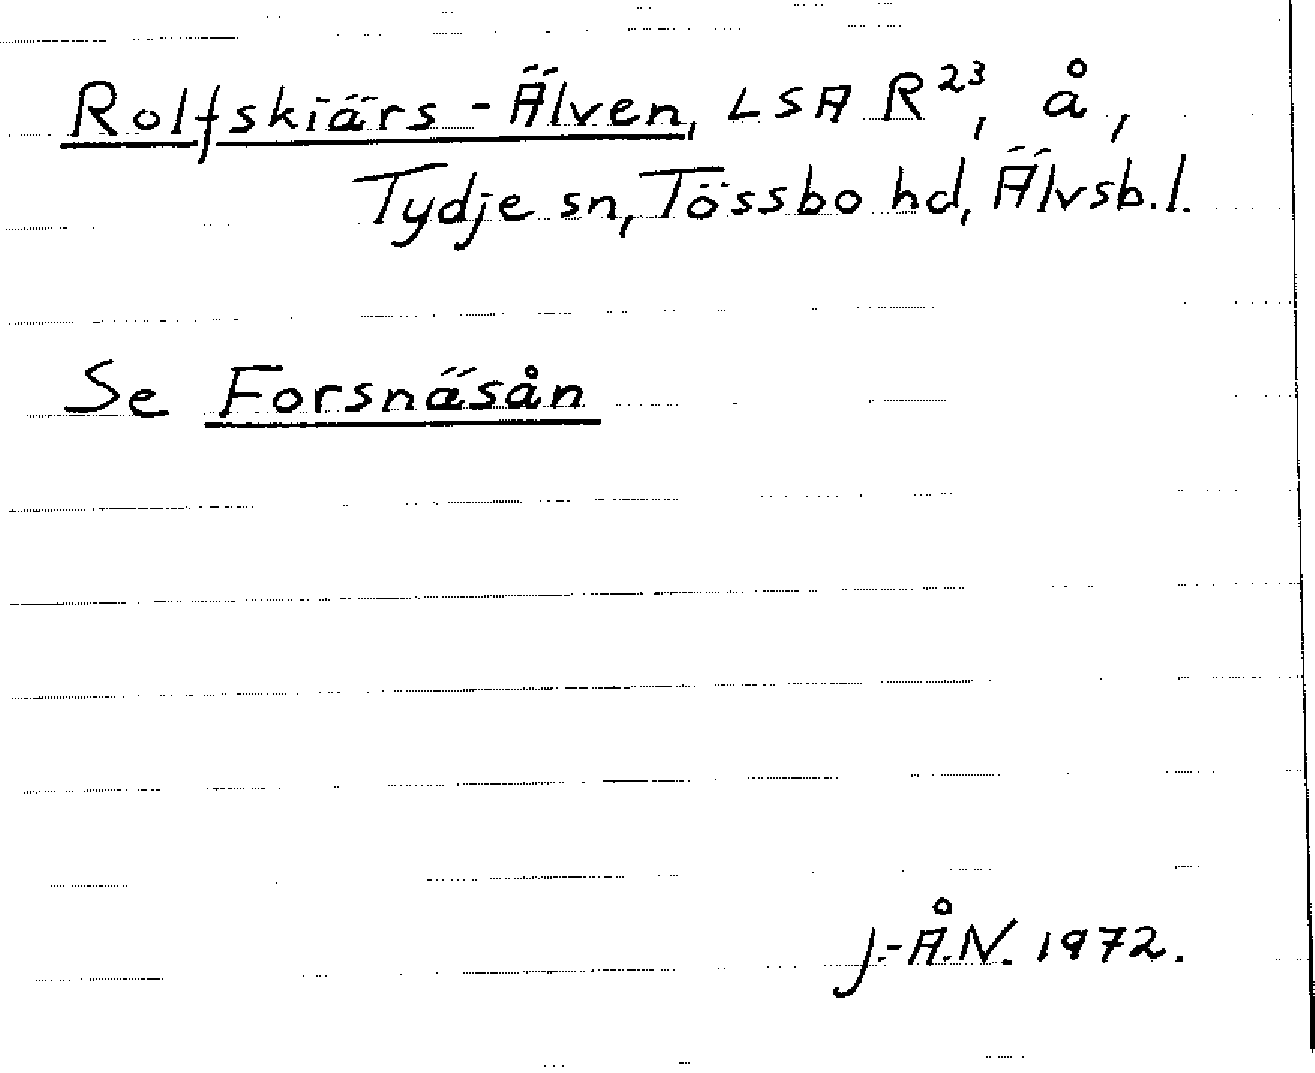 Rolfskiärs-Älven, LSA R²³, å,
Tydje sn, Tössbo hd, Älvsb. l.
Se Forsnäsån
J.-Å.N. 1972.